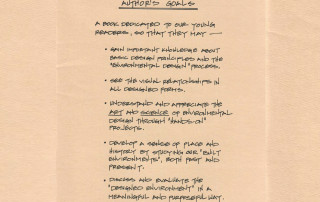 AUTHOR'S GOALS
A BOOK DEDICATED TO OUR YOUNG
READERS, SO THAT THEY MAY —
• GAIN IMPORTANT KNOWLEDGE ABOUT
BASIC DESIGN PRINCIPLES AND THE
"ENVIRONMENTAL DESIGN" PROCESS.
• SEE THE VISUAL RELATIONSHIPS IN
ALL DESIGNED FORMS.
• UNDERSTAND AND APPRECIATE THE
ART AND SCIENCE OF ENVIRONMENTAL
DESIGN THROUGH "HANDS-ON"
PROJECTS.
• DEVELOP A SENSE OF PLACE AND
HISTORY BY STUDYING OUR "BUILT
ENVIRONMENTS", BOTH PAST AND
PRESENT.
• DISCUSS AND EVALUATE THE
"DESIGNED ENVIRONMENT" IN A
MEANINGFUL AND PURPOSEFUL WAY.